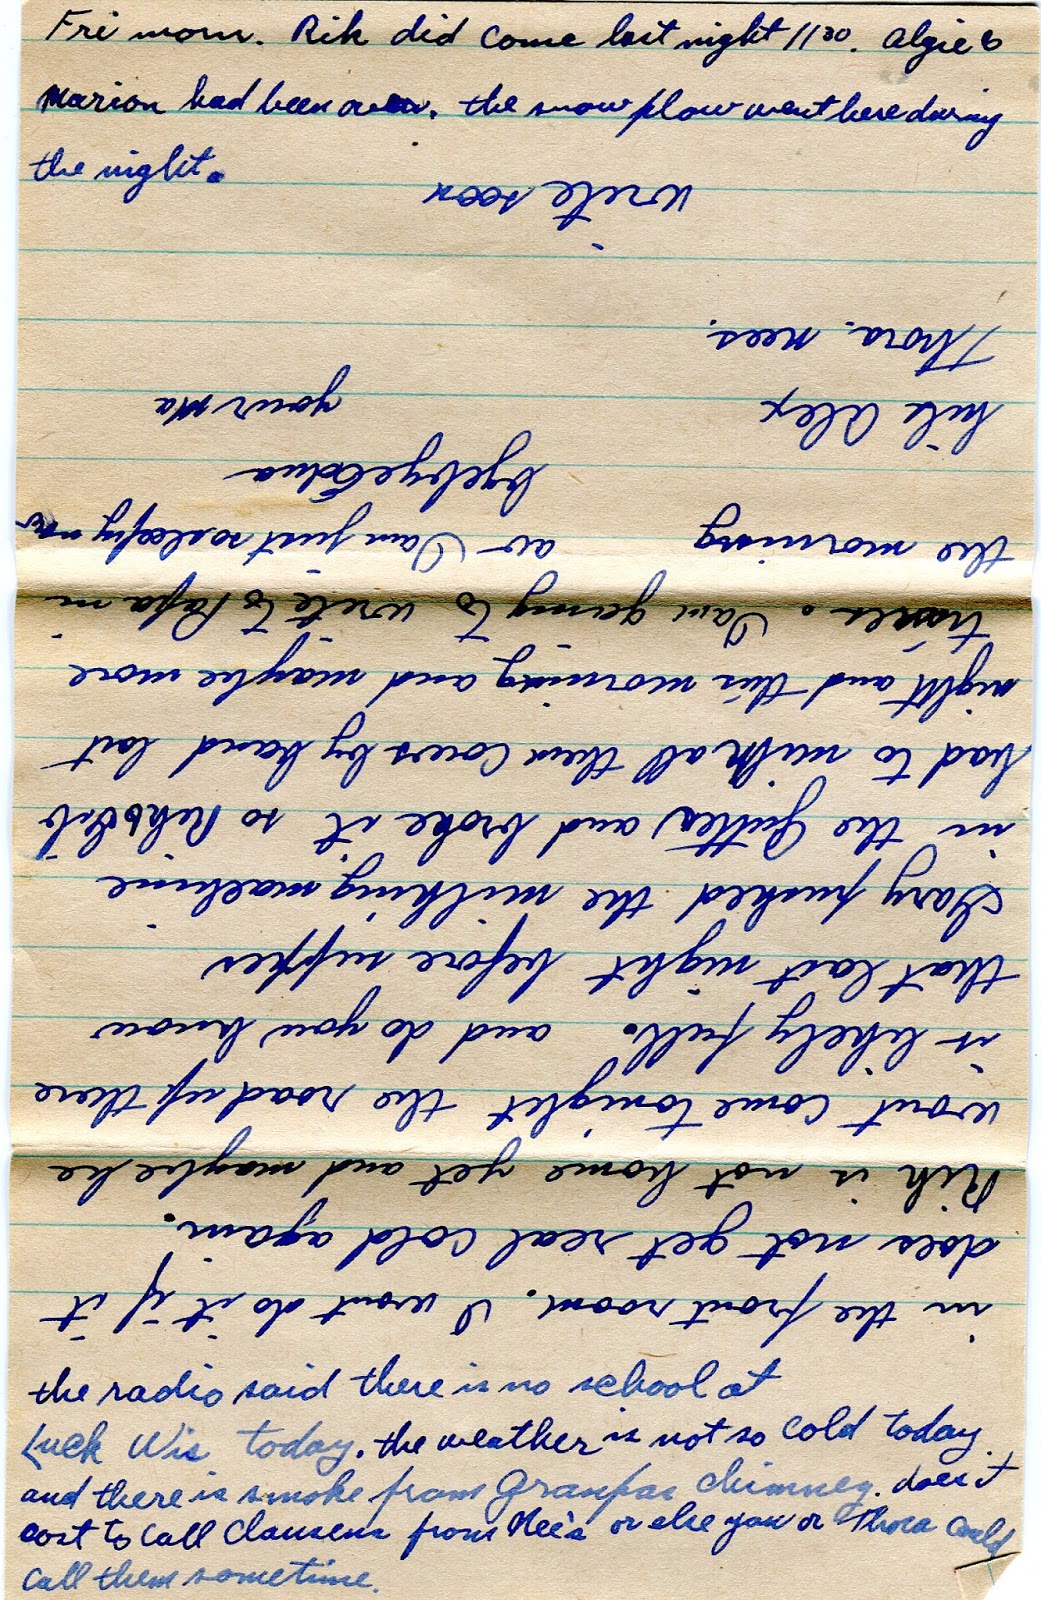 Fri morn. Rik did come last night 1130. Algie &
Marion had been over. the snow plow went here during
the night.
in the front room. I wont do it if it
does not get real cold again.
Rik is not home yet and maybe he
wont come tonight the road up there
is likely full. and do you know
that last night before supper
Gary pushed the milking machine
in the gutter and broke it so Rik &
had to milk all their cows by hand last
night and this morning and maybe more
times. I am going to write to Papa in
the morning as I am just so sleepy now
byebye Edna
hils Alex your Ma
Thora. Nees.
write soon
the radio said there is no school at
Luck Wis today. the weather is not so cold today.
and there is smoke from Granpas chimney. does it
cost to call Clausens from Nee's or else you or Thora could
call them sometime.